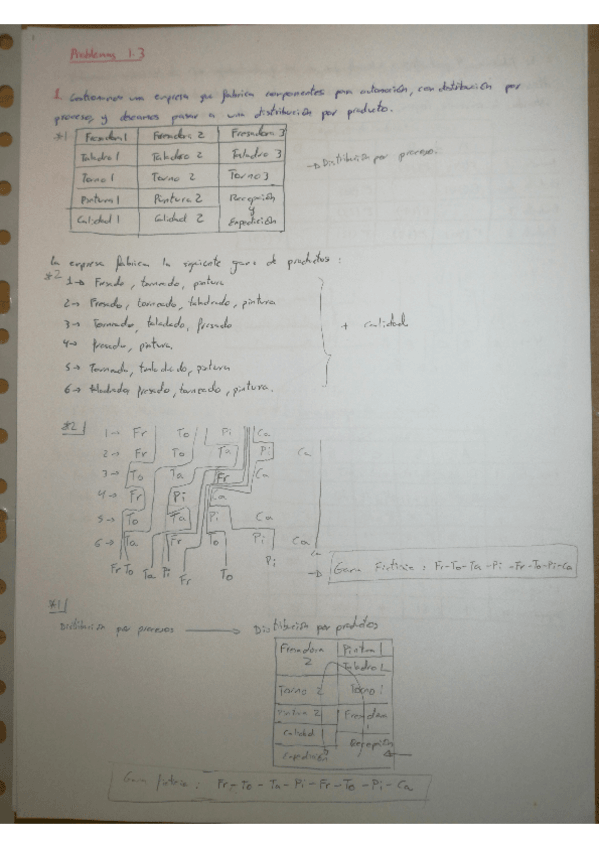 Problemas 1.3
1 Gestionamos una empresa que fabrica componentes para automoción, con distribución por
proceso, y deseamos pasar a una distribución por producto.
*1 Fresadora 1 Fresadora 2 Fresadora 3
Taladro 1 Taladro 2 Taladro 3
→ Distribución por proceso.
Torno 1 Torno 2 Torno 3
Pintura 1 Pintura 2 Recepción
y
Calidad 1 Calidad 2 Expedición
La empresa fabrica la siguiente gama de productos:
*2 1→ Fresado, torneado, pintura
2→ Fresado, torneado, taladrado, pintura
3→ Torneado, taladrado, fresado + calidad
4→ fresado, pintura
5→ Torneado, taladrado, pintura
6→ taladrado, fresado, torneado, pintura.
*2 1→ Fr To Pi Ca
2→ Fr To Ta Pi Ca
3→ To Ta Fr Ca
4→ Fr Pi Ca
5→ To Ta Pi Ca
6→ Ta Fr To Pi Ca
Fr To Ta Pi Fr To Pi Ca
→ Gama Ficticia: Fr-To-Ta-Pi-Fr-To-Pi-Ca
*1
Distribución por procesos → Distribución por productos
Fresadora 2 Pintura 1
Taladro 1
Torno 2 Torno 1
Pintura 2 Fresadora
Calidad
Recepción
expedición
Gama ficticia: Fr-To-Ta-Pi-Fr-To-Pi-Ca